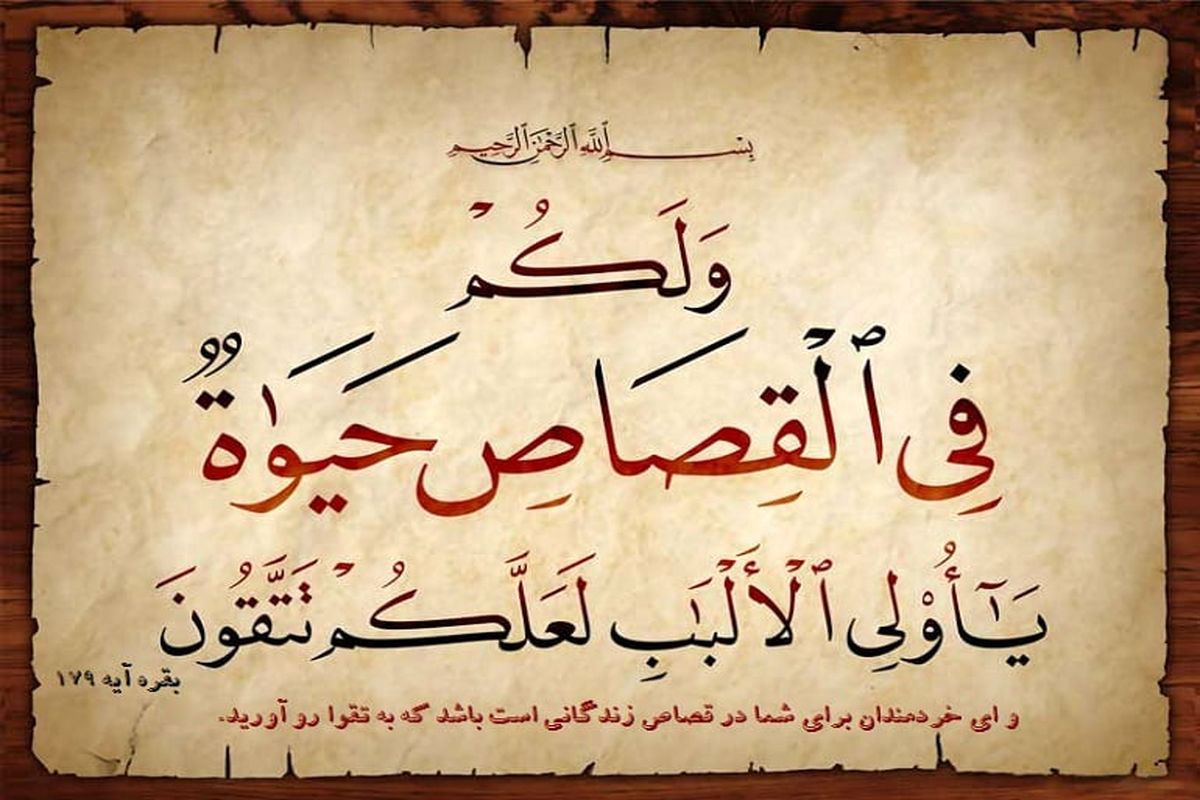 بِسْمِ ٱللَّهِ ٱلرَّحْمَٰنِ ٱلرَّحِيمِ
وَلَكُمْ
فِى ٱلْقِصَاصِ حَيَوٰةٌ
يَـٰٓأُو۟لِى ٱلْأَلْبَـٰبِ لَعَلَّكُمْ تَتَّقُونَ
بقره آیه ۱۷۹
و ای خردمندان برای شما در قصاص زندگانی است باشد که به تقوا رو آورید.